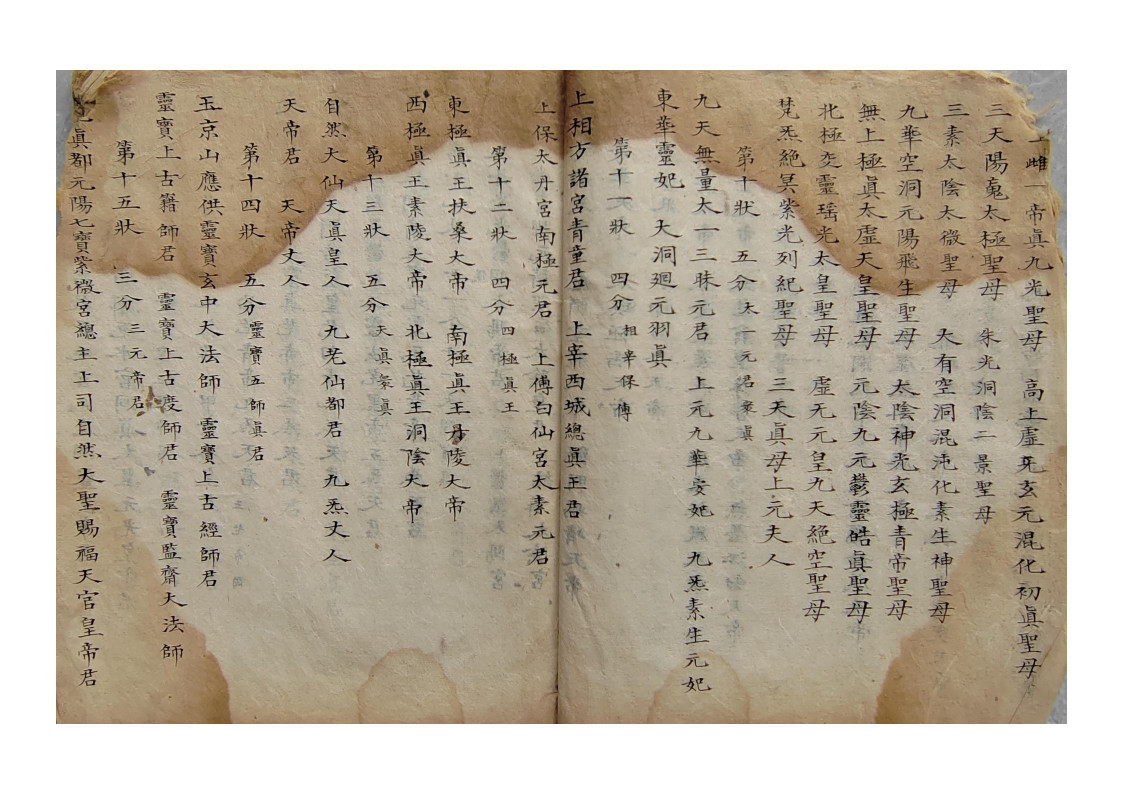 雌一帝眞九光聖母　高上虛无玄元混化初眞聖母
三天陽䰟太極聖母　朱光洞陰二景聖母
三素太陰太微聖母　大有空洞混沌化素生神聖母
九華空洞元陽飛生聖母　太陰神光玄極青帝聖母
無上極眞太虛天皇聖母　元陰九元欎靈皓眞聖母
北極変靈瑤光太皇聖母　虛无元皇九天絕空聖母
梵炁絕冥紫光列紀聖母　三天眞母上元夫人
第十狀　五分太一元君衆眞
九天無量太一三昧元君　上元九華安妃　九炁素生元妃
東華靈妃　大洞廻元羽眞
第十一狀　四分相宰保傅
上相方諸宮青童君　上宰西城總眞王君
上保太丹宮南極元君　上傅白仙宮太素元君
第十二狀　四分四極眞王
東極眞王扶桑大帝　南極眞王丹陵大帝
西極眞王素陵大帝　北極眞王洞陰大帝
第十三狀　五分天眞衆眞
自然大仙天眞皇人　九老仙都君　九炁丈人
天帝君　天帝丈人
第十四狀　五分靈寶五師眞君
玉京山應供靈寶玄中大法師　靈寶上古經師君
靈寶上古籍師君　靈寶上古度師君　靈寶監齋大法師
第十五狀　三分三元帝君
眞都元陽七寶紫微宮總主上司自然大聖賜福天官皇帝君